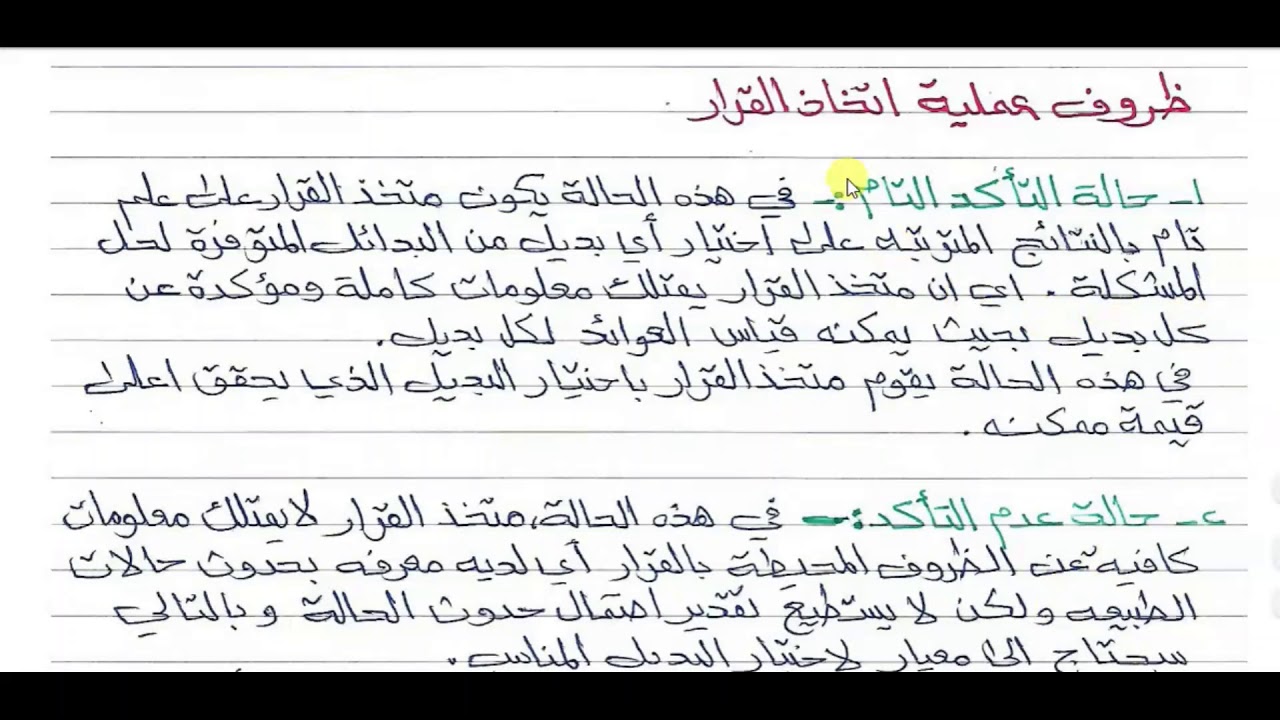 ظروف عملية اتخاذ القرار
١- حالة التأكد التام :- في هذه الحالة يكون متخذ القرار على علم
تام بالنتائج المترتبه على اختيار أي بديل من البدائل المتوفرة لحل
المشكلة . اي ان متخذ القرار يمتلك معلومات كاملة ومؤكدة عن
كل بديل بحيث يمكنه قياس العوائد لكل بديل .
في هذه الحالة يقوم متخذ القرار باختيار البديل الذي يحقق اعلى
قيمة ممكنه .
٢- حالة عدم التأكد :- في هذه الحالة، متخذ القرار لا يمتلك معلومات
كافيه عن الظروف المحيطة بالقرار أي لديه معرفه بحدوث حالات
الطبيعه ولكن لا يستطيع تقدير احتمال حدوث الحالة وبالتالي
سيحتاج الى معيار لاختيار البديل المناسب .